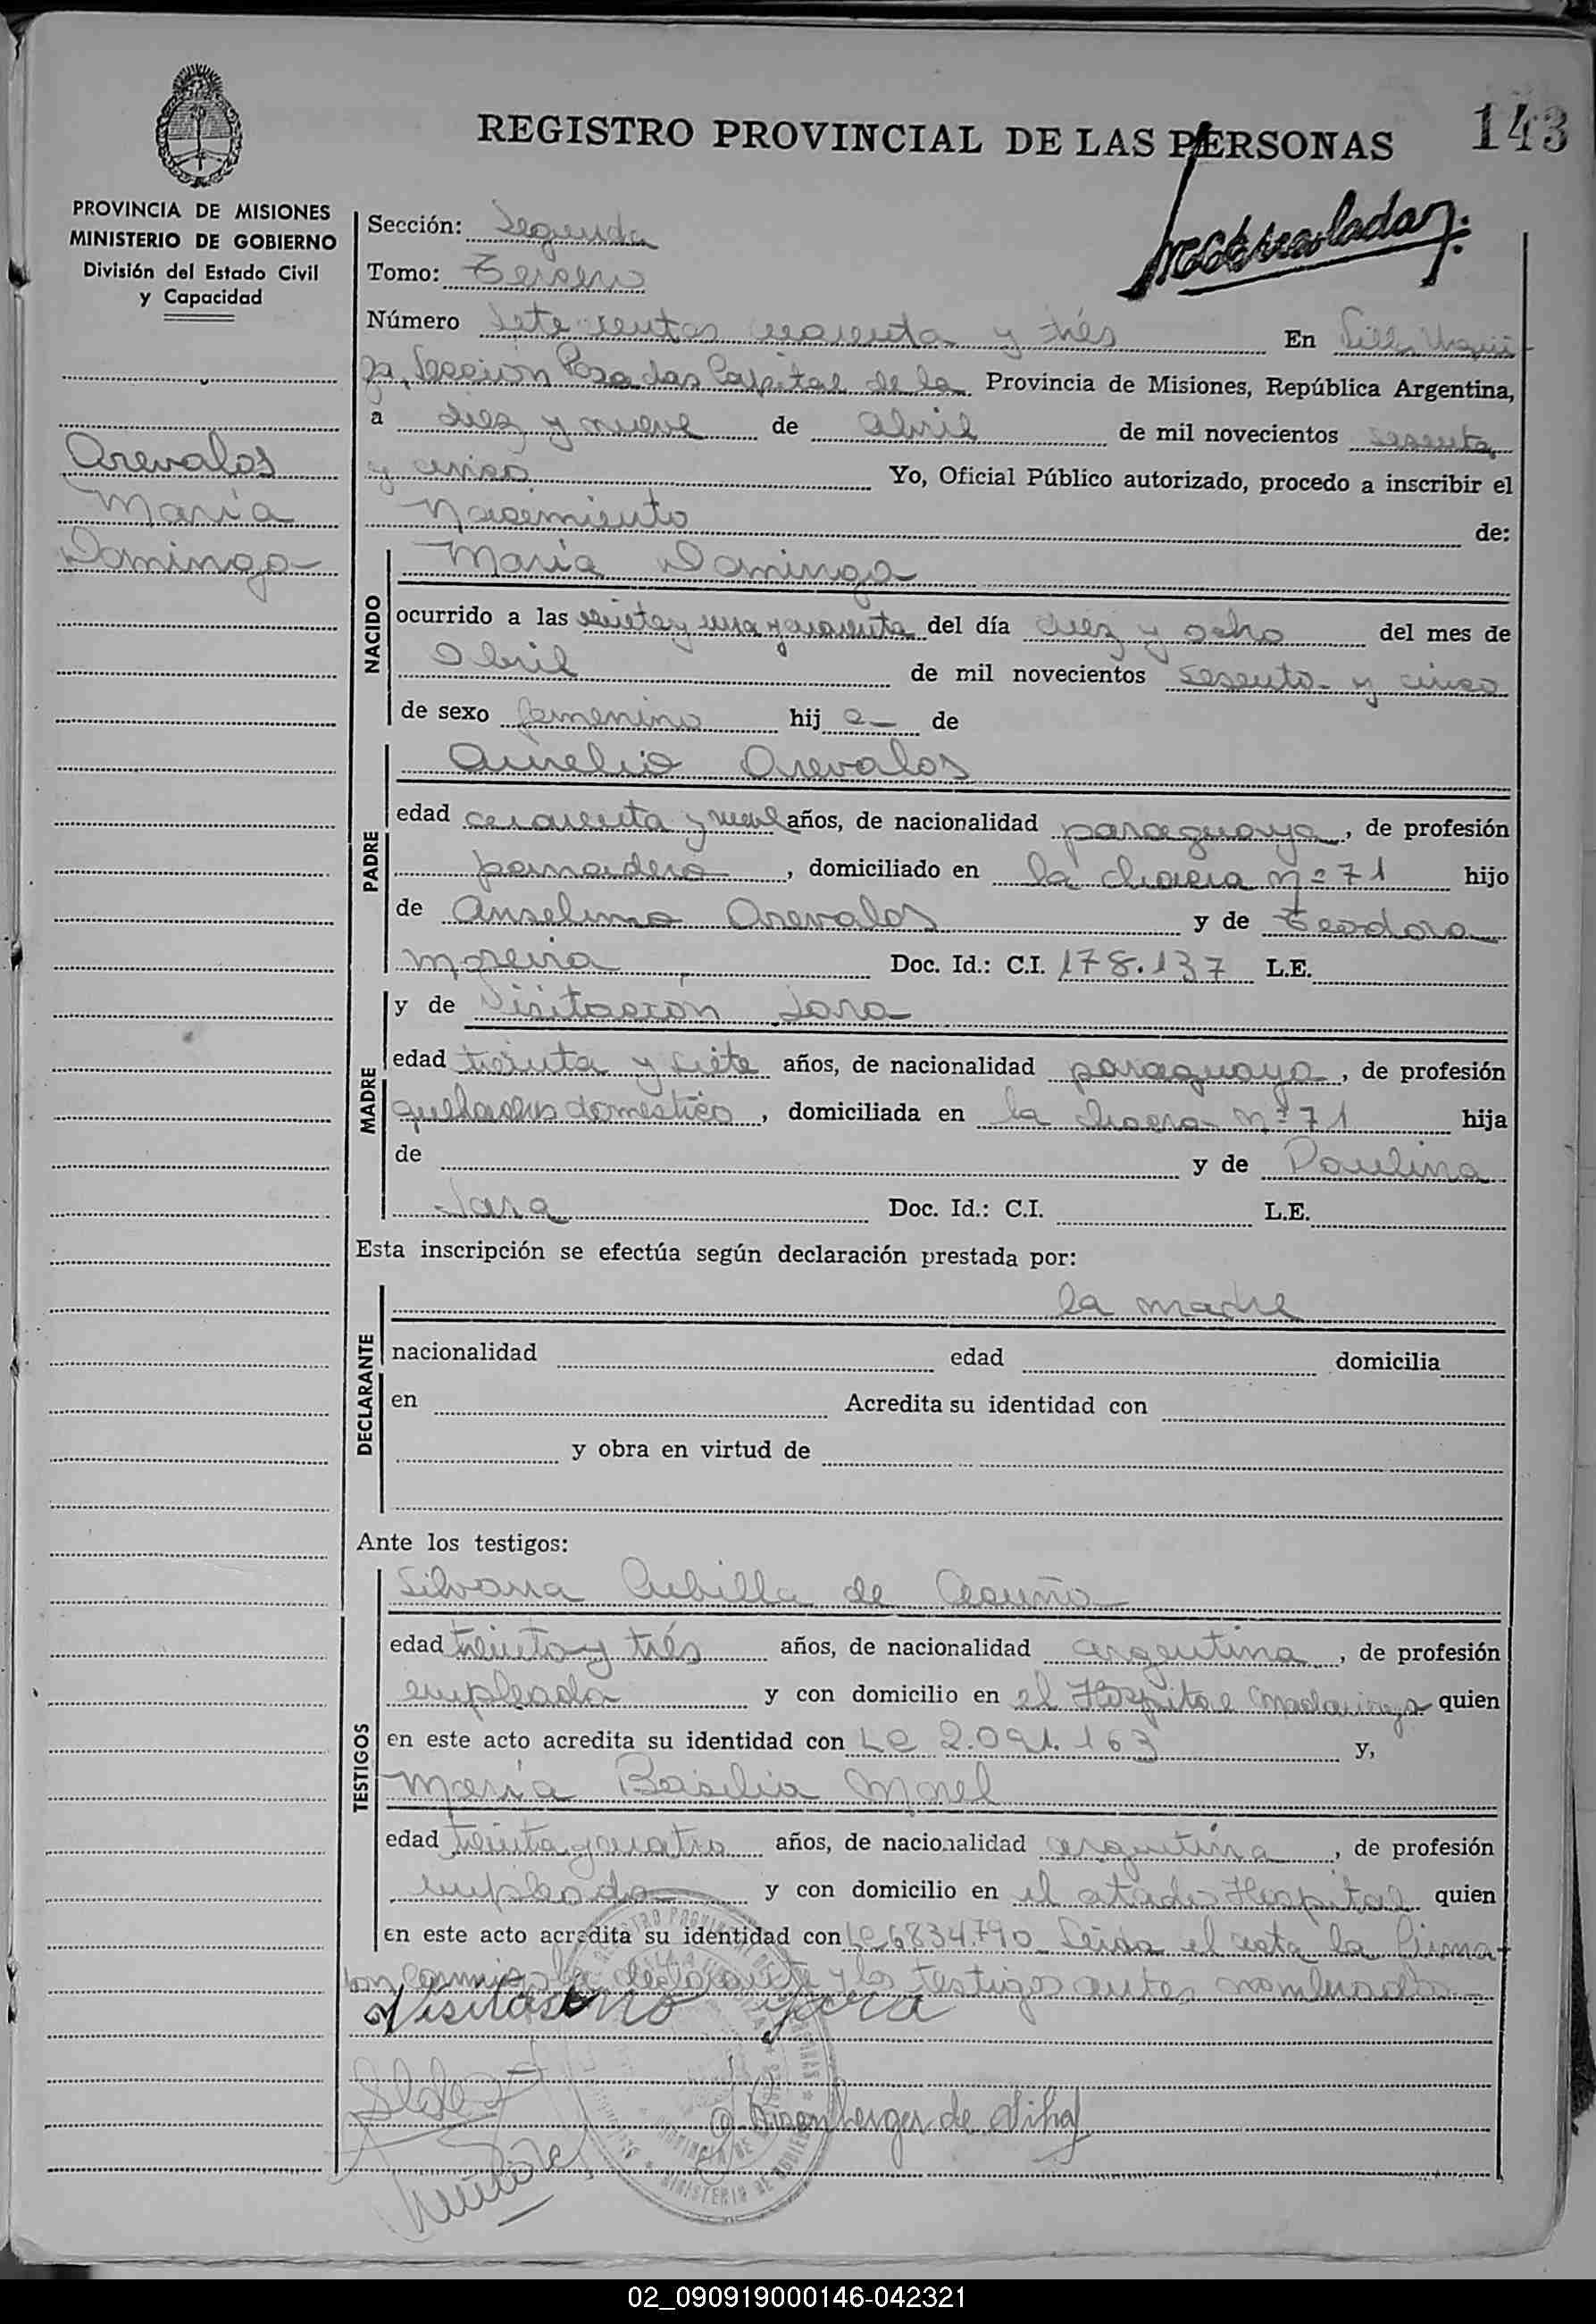 143
REGISTRO PROVINCIAL DE LAS PERSONAS
PROVINCIA DE MISIONES
MINISTERIO DE GOBIERNO
División del Estado Civil
y Capacidad
Arevalos
María
Dominga
Sección: Segunda
Tomo: Tercero
Número Setecientos cuarenta y trés En Villa Urqui
za, Sección Posadas Capital de la Provincia de Misiones, República Argentina,
a diez y nueve de abril de mil novecientos sesenta
y cinco Yo, Oficial Público autorizado, procedo a inscribir el
Nacimiento de:
NACIDO
María Dominga
ocurrido a las y una y cuarenta del día diez y ocho del mes de
Abril de mil novecientos sesenta y cinco
de sexo femenino hij a de
PADRE
Aurelio Arevalos
edad cuarenta y nueve años, de nacionalidad paraguaya, de profesión
panadero, domiciliado en la chacra Nº 71 hijo
de Anselmo Arevalos y de Teodora
Moreira Doc. Id.: C.I. 178.137 L.E.
MADRE
y de Visitación Jara
edad treinta y siete años, de nacionalidad paraguaya, de profesión
quehaceres domestico, domiciliada en la chacra Nº 71 hija
de y de Paulina
Jara Doc. Id.: C.I. L.E.
Esta inscripción se efectúa según declaración prestada por:
DECLARANTE
la madre
nacionalidad edad domicilia
en Acredita su identidad con
y obra en virtud de
Ante los testigos:
TESTIGOS
Silvana Cubilla de Acuña
edad treinta y trés años, de nacionalidad argentina, de profesión
empleada y con domicilio en el Hospital Madariaga quien
en este acto acredita su identidad con LC 2.091.163 y,
María Basilia Morel
edad treinta y cuatro años, de nacionalidad argentina, de profesión
empleada y con domicilio en el citado Hospital quien
en este acto acredita su identidad con LC 6834790 Leida el acta la firma-
con conmigo la declarante y los testigos antes nombrados
Visitasino Jara
de
02_090919000146-042321